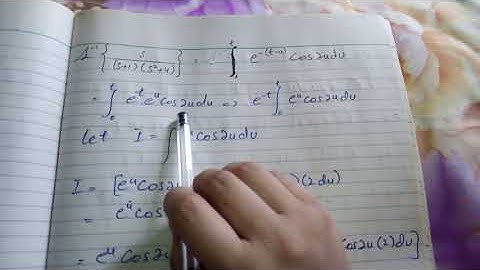 L⁻¹ { s / (s+1)(s²+4) } ... ∫₀ᵗ e^-(t-u) cos2u du
= ∫₀ᵗ e^-t e^u cos2u du ⇒ e^-t ∫₀ᵗ e^u cos2u du
Let I = ∫ cos2u du
I = [e^u cos2u )(2du)
= e^u cos
= e^u cos cos2u (2) du]